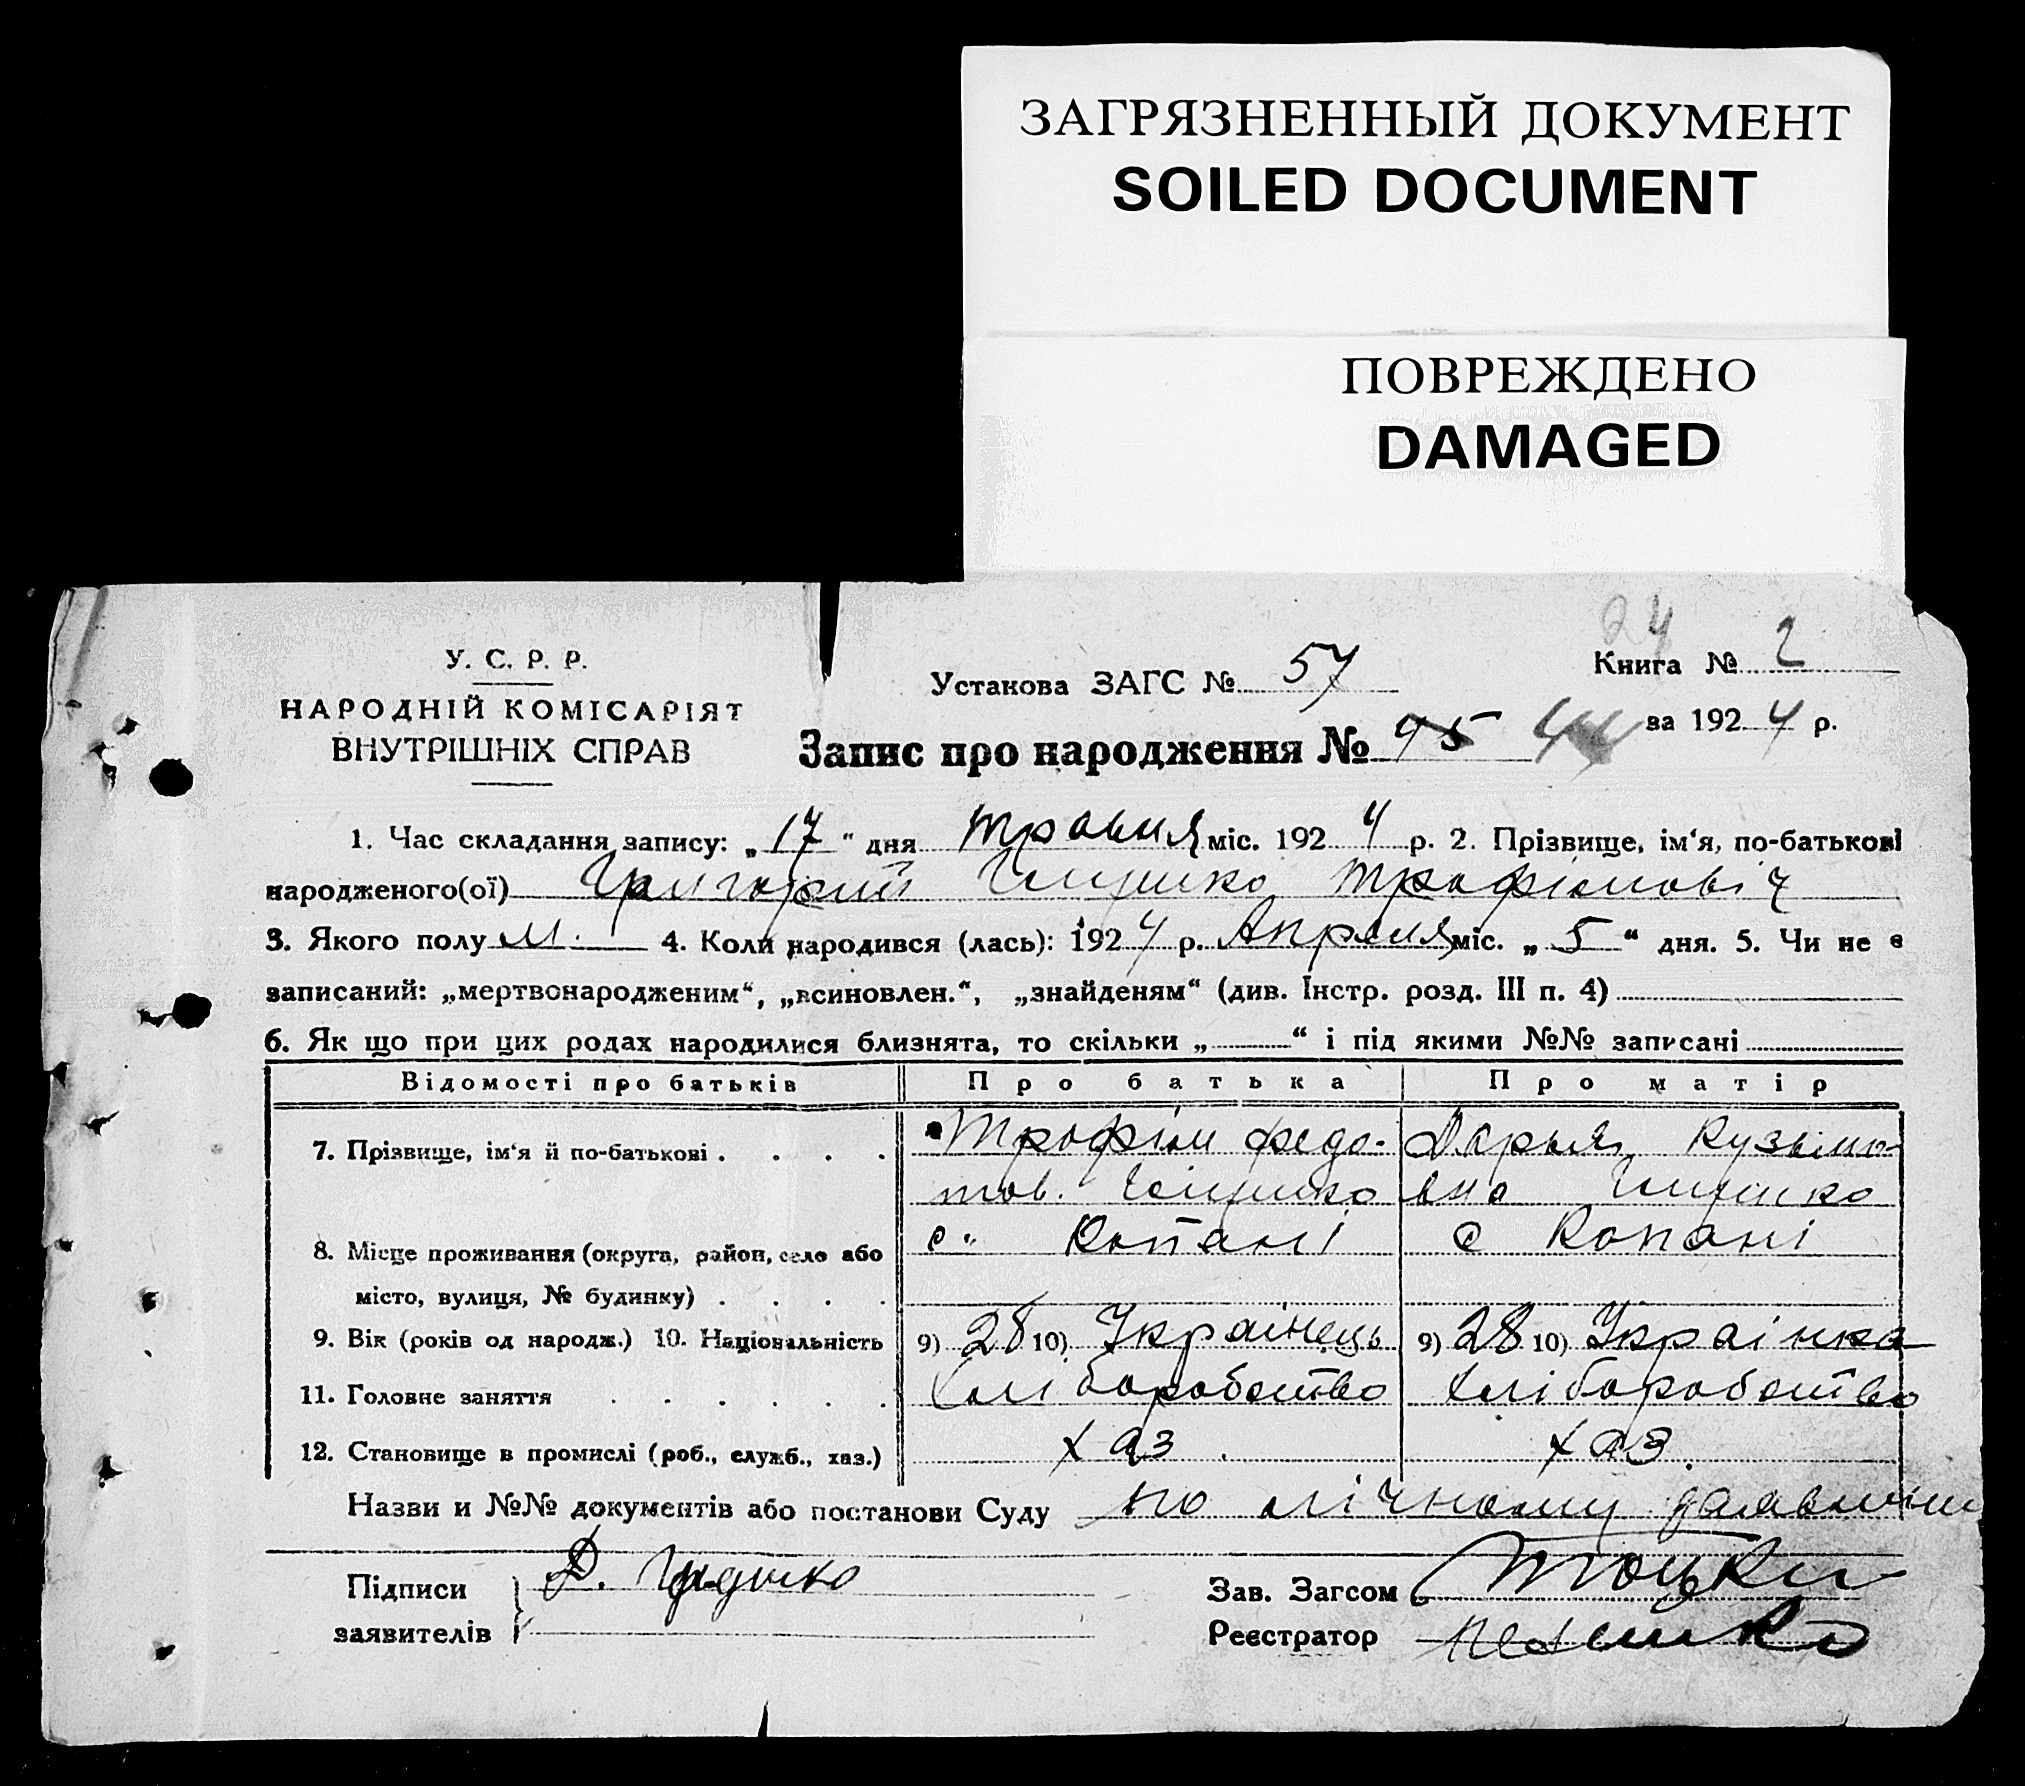 ЗАГРЯЗНЕННЫЙ ДОКУМЕНТ
SOILED DOCUMENT
ПОВРЕЖДЕНО
DAMAGED
24
У. С. Р. Р.
НАРОДНІЙ КОМІСАРІЯТ
ВНУТРІШНІХ СПРАВ
Установа ЗАГС № 57
Книга № 2
за 1924 р.
Запис про народження № 45 44
1. Час складання запису: „17" дня травня міс. 1924 р. 2. Прізвище, ім'я, по-батькові
народженого(ої) Григорий Трофімовіч
3. Якого полу м. 4. Коли народився (лась): 1924 р. Апреля міс. „5" дня. 5. Чи не є
записаний: „мертвонародженим", „всиновлен.", „знайденям" (див. Інстр. розд. III п. 4)
6. Як що при цих родах народилися близнята, то скільки „ " і під якими №№ записані
Відомості про батьків Про батька Про матір
7. Прізвище, ім'я й по-батькові . . . . Трофім Федо- Дарья Кузьмо-
тов. вна
8. Місце проживання (округа, район, село або с. Копані с Копані
місто, вулиця, № будинку) . . . .
9. Вік (років од народж.) 10. Національність 9) 28 10) Українець 9) 28 10) Украінка
11. Головне заняття . . . . . . хліборобство хліборобство
12. Становище в промислі (роб., служб., хаз.) хаз. хаз.
Назви и №№ документів або постанови Суду по лічному заявлению
Підписи Д.
заявителів
Зав. Загсом
Реєстратор